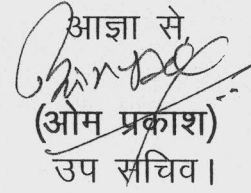 आज्ञा से,
(ओम प्रकाश)
उप सचिव।